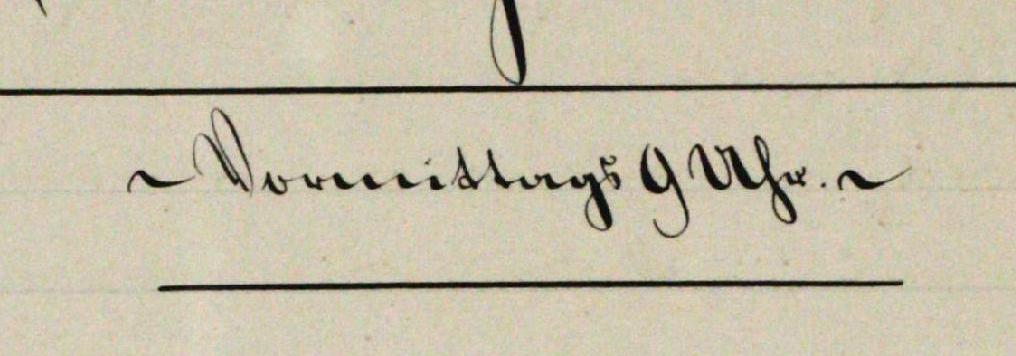 ~ Vormittags 9 Uhr. ~